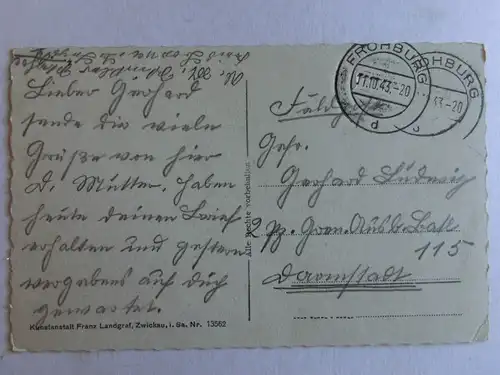 Lieber Gerhard
sende dir viele
Grüße von hier
D. Mutter. haben
heute deinen Brief
erhalten und gestern
vergebens auf dich
gewartet.
Kunstanstalt Franz Landgraf, Zwickau, i. Sa. Nr. 13562
Alle Rechte vorbehalten
FROHBURG
11.10.43.-20
d
FROHBURG
43.-20
Feldpost
Gefr.
Gerhard Ludwig
2 Pz. Gren. Ausb. Batl
115
Darmstadt